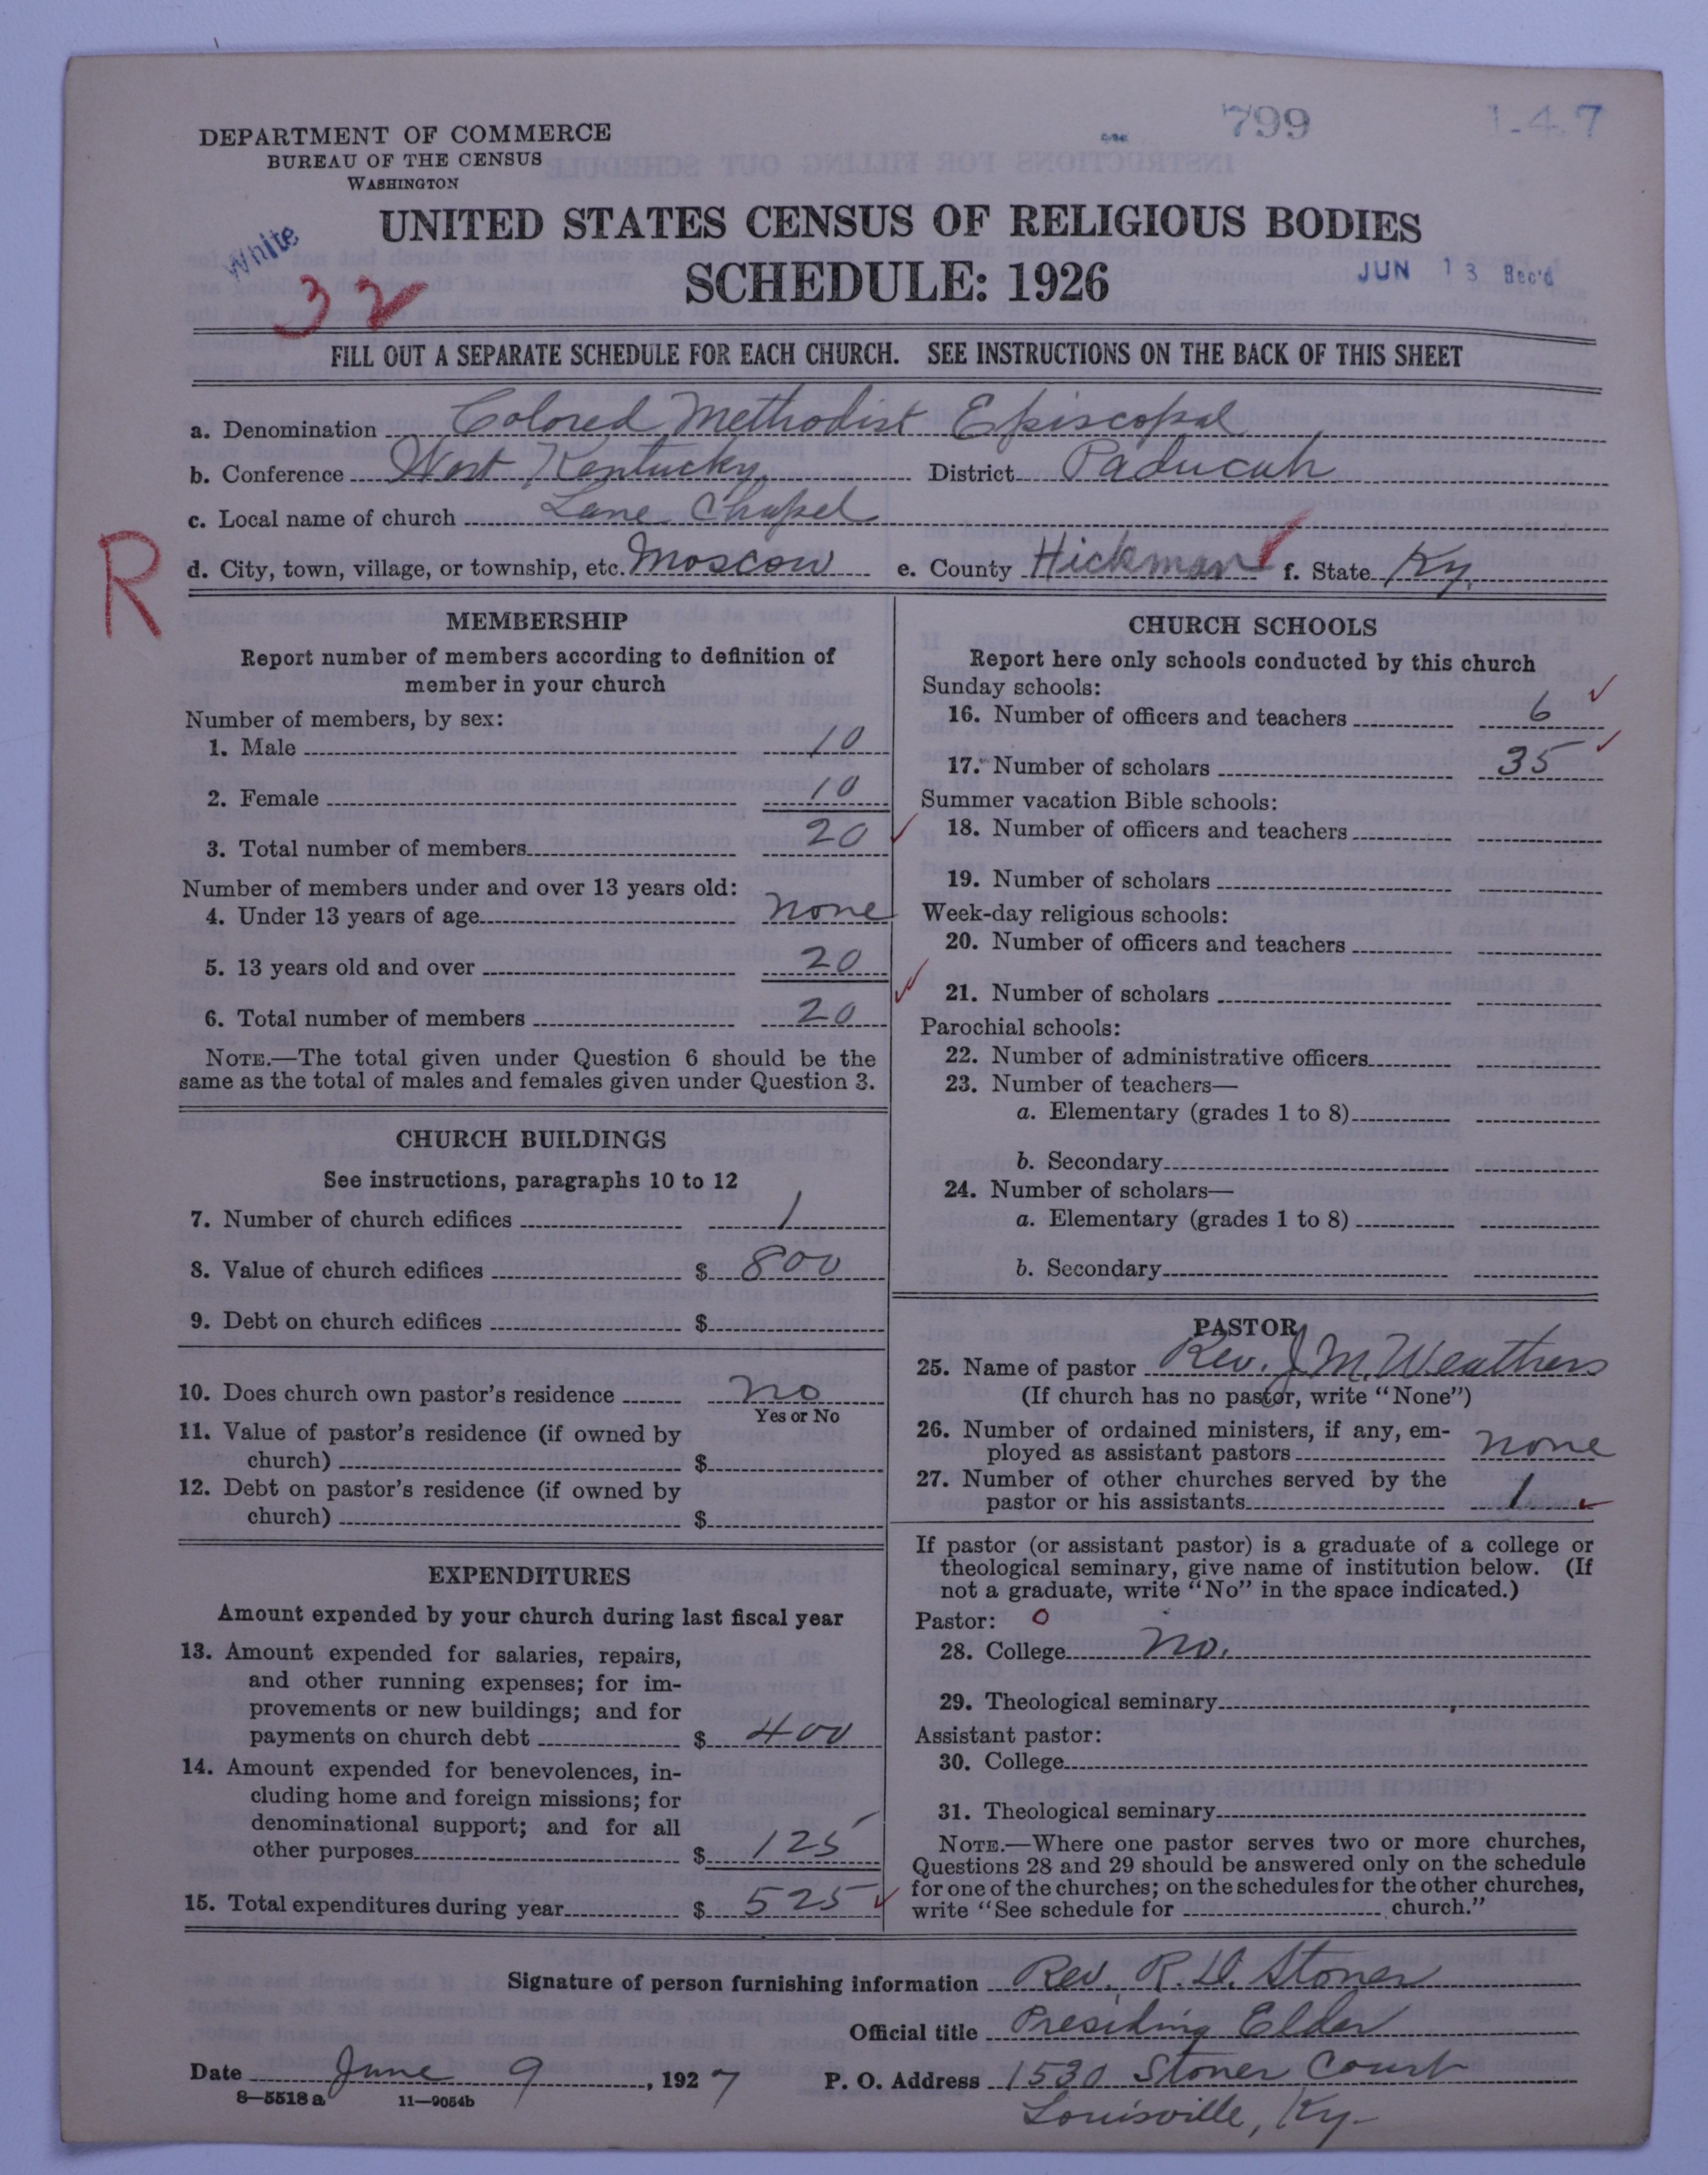 799
1-4-7
DEPARTMENT OF COMMERCE
BUREAU OF THE CENSUS
WASHINGTON
White
32
UNITED STATES CENSUS OF RELIGIOUS BODIES
SCHEDULE: 1926
JUN 13 Rec'd
FILL OUT A SEPARATE SCHEDULE FOR EACH CHURCH. SEE INSTRUCTIONS ON THE BACK OF THIS SHEET
a. Denomination Colored Methodist Episcopal
b. Conference West Kentucky District Paducah
c. Local name of church Lane Chapel
R
d. City, town, village, or township, etc. Moscow e. County Hickman f. State Ky.
MEMBERSHIP
Report number of members according to definition of
member in your church
Number of members, by sex:
1. Male 10
2. Female 10
3. Total number of members 20
Number of members under and over 13 years old:
4. Under 13 years of age none
5. 13 years old and over 20
6. Total number of members 20
NOTE.—The total given under Question 6 should be the
same as the total of males and females given under Question 3.
CHURCH BUILDINGS
See instructions, paragraphs 10 to 12
7. Number of church edifices 1
8. Value of church edifices $ 800
9. Debt on church edifices $
10. Does church own pastor's residence no
Yes or No
11. Value of pastor's residence (if owned by
church) $
12. Debt on pastor's residence (if owned by
church) $
EXPENDITURES
Amount expended by your church during last fiscal year
13. Amount expended for salaries, repairs,
and other running expenses; for im-
provements or new buildings; and for
payments on church debt $ 400
14. Amount expended for benevolences, in-
cluding home and foreign missions; for
denominational support; and for all
other purposes $ 125
15. Total expenditures during year $ 525
CHURCH SCHOOLS
Report here only schools conducted by this church
Sunday schools:
16. Number of officers and teachers 6
17. Number of scholars 35
Summer vacation Bible schools:
18. Number of officers and teachers
19. Number of scholars
Week-day religious schools:
20. Number of officers and teachers
21. Number of scholars
Parochial schools:
22. Number of administrative officers
23. Number of teachers—
a. Elementary (grades 1 to 8)
b. Secondary
24. Number of scholars—
a. Elementary (grades 1 to 8)
b. Secondary
PASTOR
25. Name of pastor Rev. J. M. Weathers
(If church has no pastor, write "None")
26. Number of ordained ministers, if any, em-
ployed as assistant pastors none
27. Number of other churches served by the
pastor or his assistants 1
If pastor (or assistant pastor) is a graduate of a college or
theological seminary, give name of institution below. (If
not a graduate, write "No" in the space indicated.)
Pastor: 0
28. College no.
29. Theological seminary
Assistant pastor:
30. College
31. Theological seminary
NOTE.—Where one pastor serves two or more churches,
Questions 28 and 29 should be answered only on the schedule
for one of the churches; on the schedules for the other churches,
write "See schedule for church."
Signature of person furnishing information Rev. R. D. Stoner
Official title Presiding Elder
Date June 9, 1927 P. O. Address 1530 Stoner Court
8—5518a 11—9054b
Louisville, Ky.